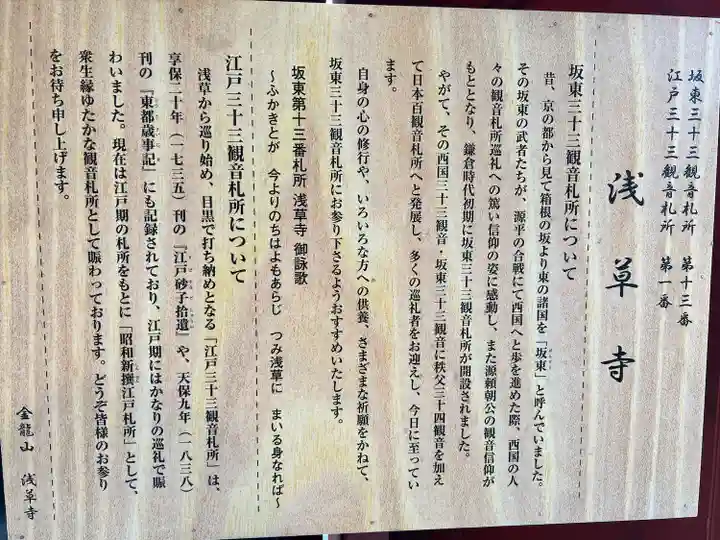 坂東三十三観音札所　第十三番
江戸三十三観音札所　第一番
浅草寺
坂東三十三観音札所について
昔、京の都から見て箱根の坂より東の諸国を「坂東」と呼んでいました。
その坂東の武者たちが、源平の合戦にて西国へと歩を進めた際、西国の人
々の観音札所巡礼への篤い信仰の姿に感動し、また源頼朝公の観音信仰が
もととなり、鎌倉時代初期に坂東三十三観音札所が開設されました。
やがて、その西国三十三観音・坂東三十三観音に秩父三十四観音を加え
て日本百観音札所へと発展し、多くの巡礼者をお迎えし、今日に至ってい
ます。
自身の心の修行や、いろいろな方への供養、さまざまな祈願をかねて、
坂東三十三観音札所にお参り下さるようおすすめいたします。
坂東第十三番札所　浅草寺　御詠歌
～ふかきとが　今よりのちはよもあらじ　つみ浅草に　まいる身なれば～
江戸三十三観音札所について
浅草から巡り始め、目黒で打ち納めとなる「江戸三十三観音札所」は、
享保二十年（一七三五）刊の『江戸砂子拾遺』や、天保九年（一八三八）
刊の『東都歳事記』にも記録されており、江戸期にはかなりの巡礼で賑
わいました。現在は江戸期の札所をもとに「昭和新撰江戸札所」として、
衆生縁ゆたかな観音札所として賑わっております。どうぞ皆様のお参り
をお待ち申し上げます。
金龍山　浅草寺